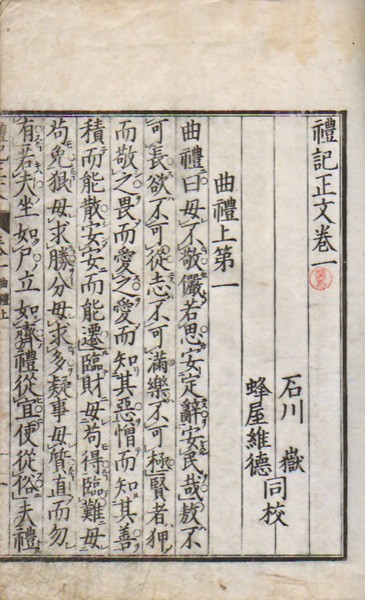 禮記正文卷一
石川　嶽
蜂屋維德同校
曲禮上第一
曲禮曰毋不敬儼若思安定辭安民哉敖不
可長欲不可從志不可滿樂不可極賢者狎
而敬之畏而愛之愛而知其惡憎而知其善
積而能散安安而能遷臨財毋苟得臨難毋
苟免狠毋求勝分毋求多疑事毋質直而勿
有若夫坐如尸立如齊禮從宜使從俗夫禮
曲禮上